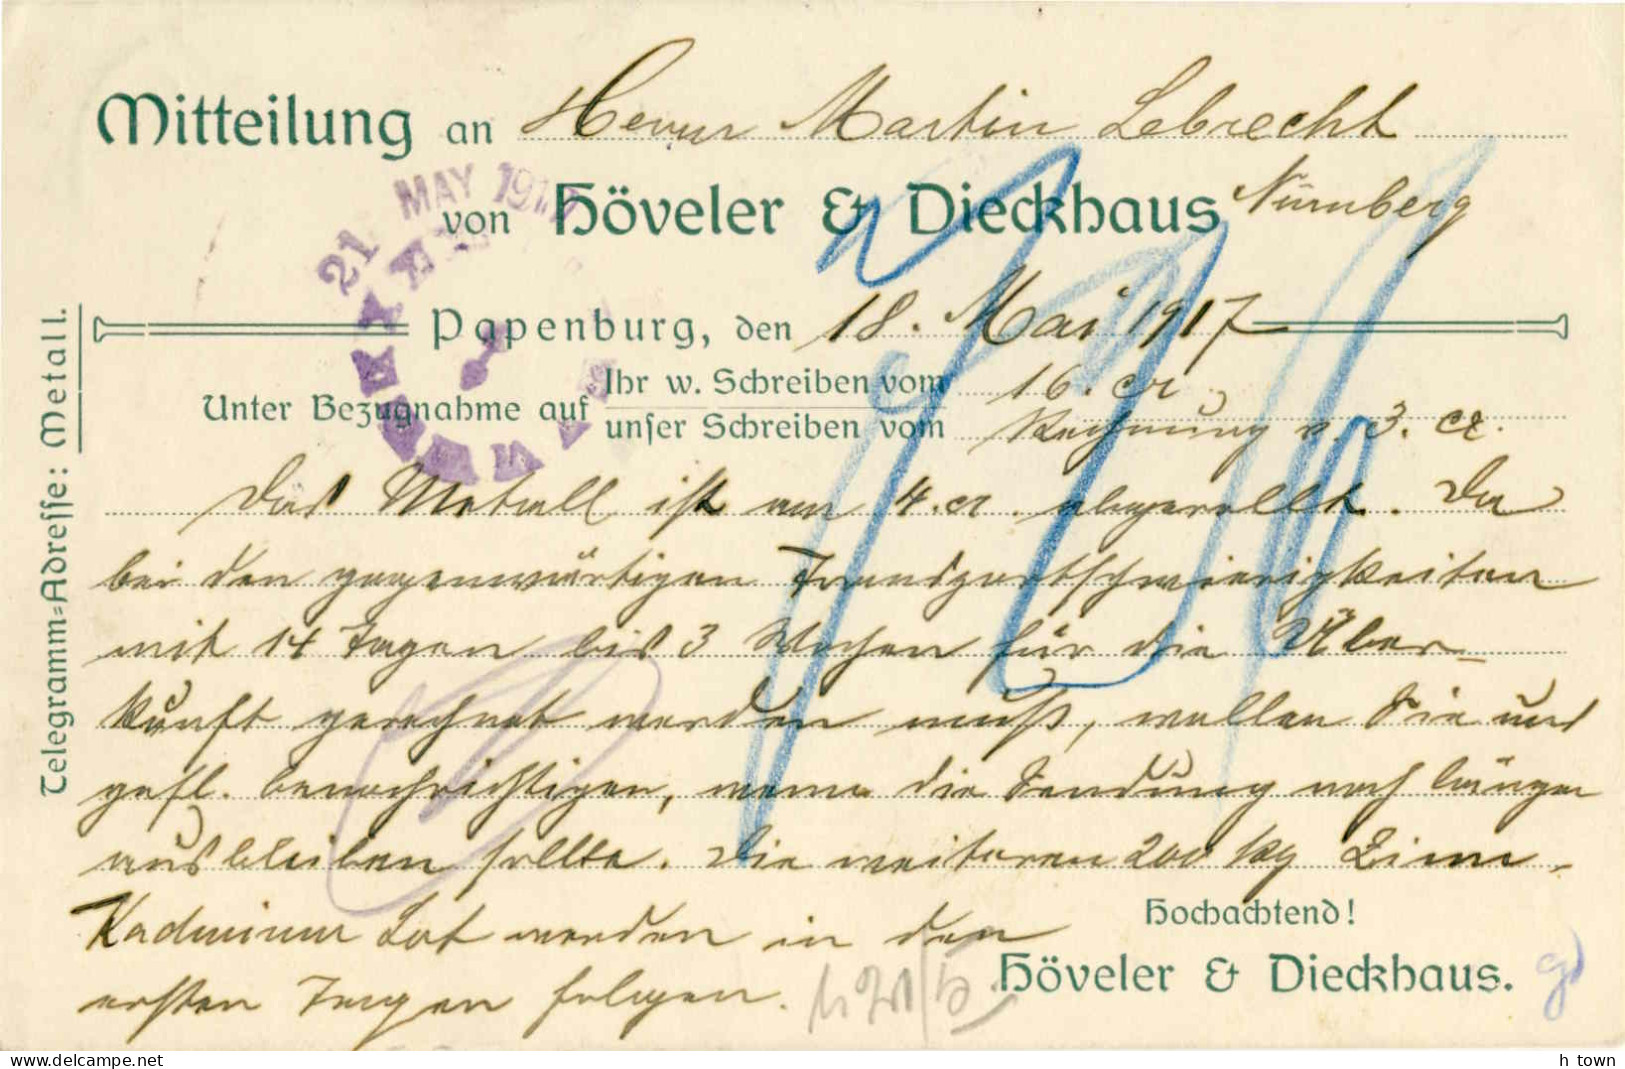 Mitteilung an Herrn Martin Lebrecht
Nürnberg
von Höveler & Dieckhaus
21 MAY 191
Papenburg, den 18. Mai 1917
Unter Bezugnahme auf
Ihr w. Schreiben vom 16. cr.,
unser Schreiben vom Rechnung v. 3. cr.
Telegramm=Adresse: Metall.
Das Metall ist am 4. cr. abgerollt. Da
bei den gegenwärtigen Transportschwierigkeiten
mit 14 Tagen bis 3 Wochen für die Über-
kunft gerechnet werden muß, wollen Sie uns
gefl. benachrichtigen, wenn die Sendung noch länger
ausbleiben sollte. Die weiteren 200 kg Zinn-
Kadmium Lot werden in den
ersten Tagen folgen.
Hochachtend!
Höveler & Dieckhaus.
h_town